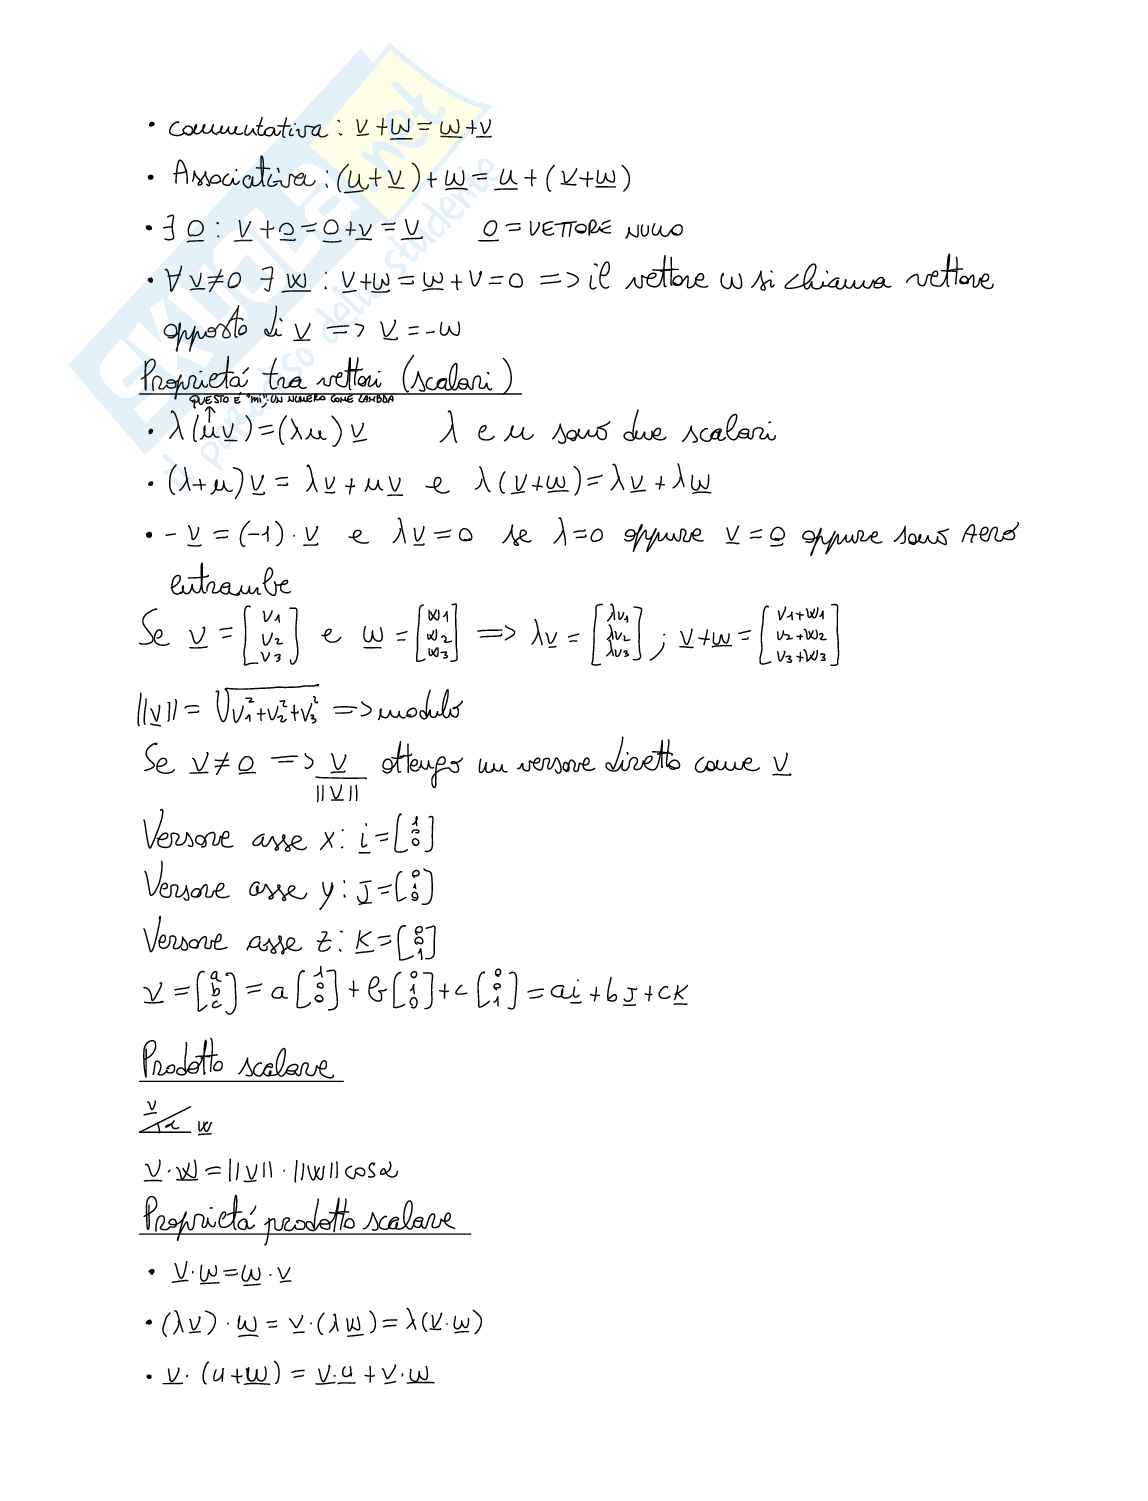 • commutativa: v+w=w+v
• Associativa: (u+v)+w=u+(v+w)
• ∃ 0 : v+0=0+v=v 0=VETTORE NULLO
• ∀ v≠0 ∃ w : v+w=w+v=0 => il vettore w si chiama vettore
opposto di v => v=-w
Proprietá tra vettori (scalari)
QUESTO E "mi": UN NUMERO COME LAMBDA
• λ(μv)=(λμ)v λ e μ sono due scalari
• (λ+μ)v=λv+μv e λ(v+w)=λv+λw
• -v=(-1)·v e λv=0 se λ=0 oppure v=0 oppure sono zero
entrambe
Se v=[v1 v2 v3] e w=[w1 w2 w3] => λv=[λv1 λv2 λv3]; v+w=[v1+w1 v2+w2 v3+w3]
||v||=√v1²+v2²+v3² => modulo
Se v≠0 => v/||v|| ottengo un versore diretto come v
Versore asse x: i=[1 0 0]
Versore asse y: J=[0 1 0]
Versore asse z: K=[0 0 1]
v=[a b c]=a[1 0 0]+b[0 1 0]+c[0 0 1]=ai+bJ+cK
Prodotto scalare
v α w
v·w=||v||·||w||cosα
Proprietá prodotto scalare
• v·w=w·v
• (λv)·w=v·(λw)=λ(v·w)
• v·(u+w)=v·u+v·w
SKUOLA.net
il paradiso dello studente